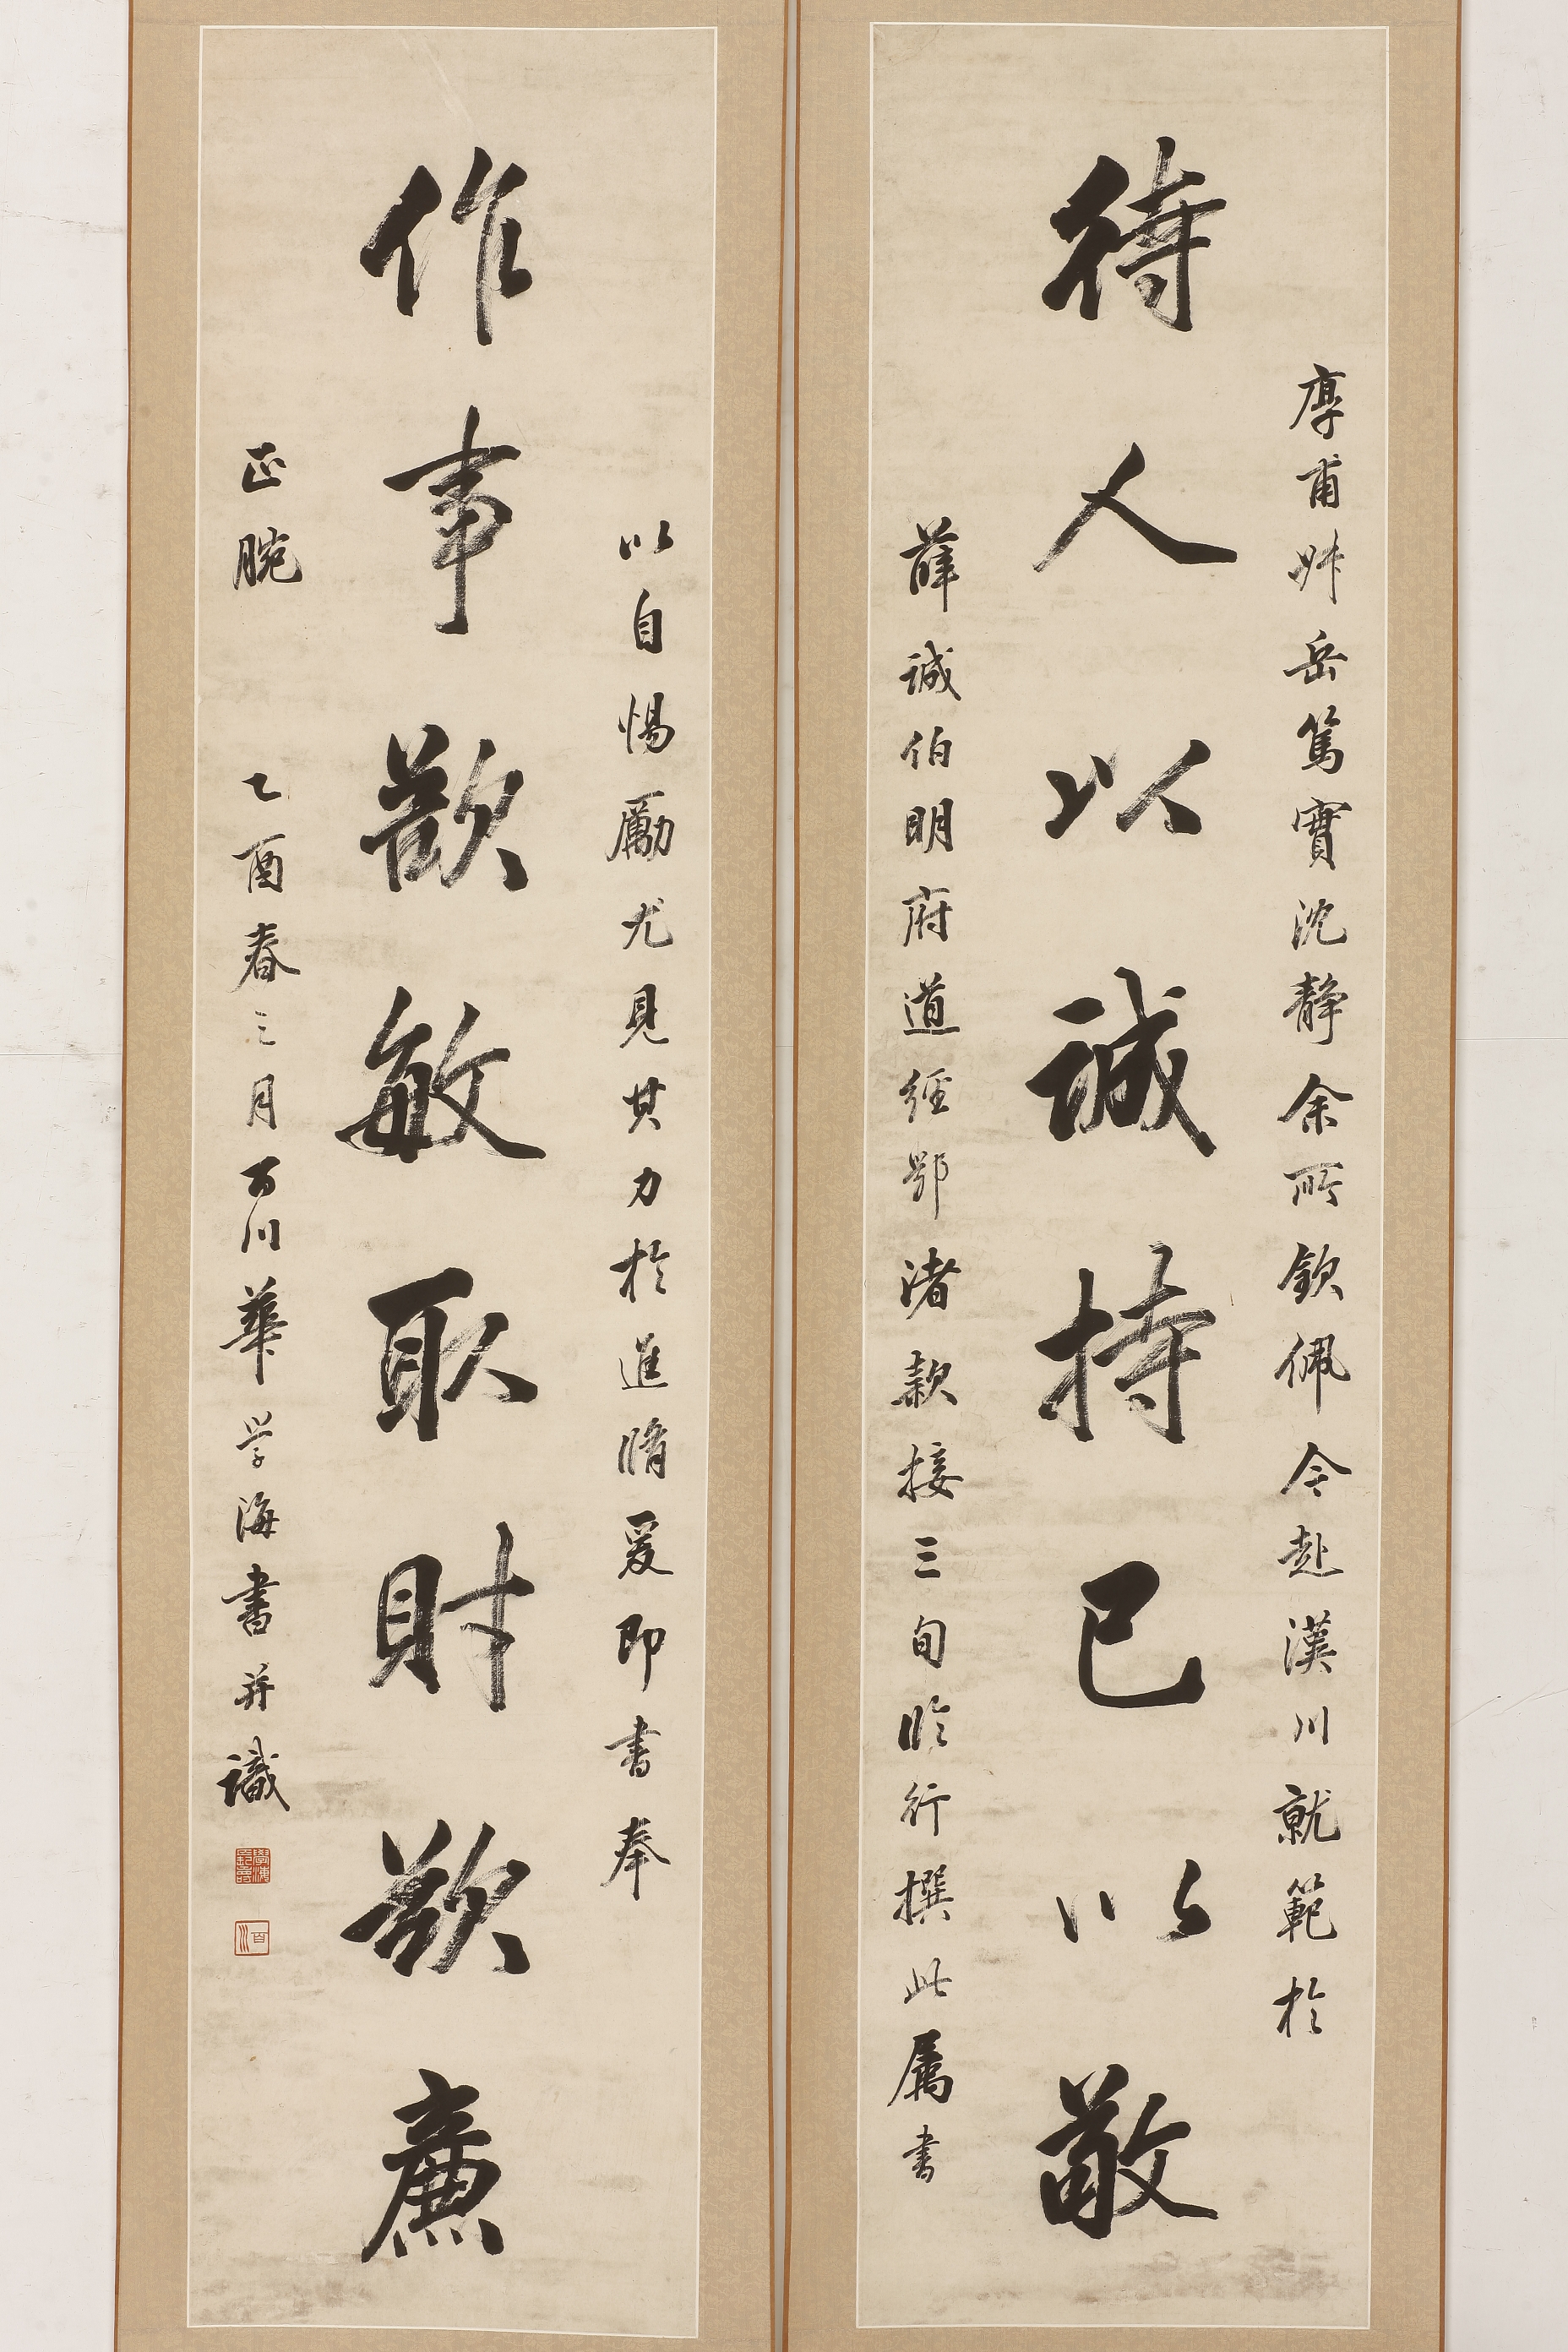 厚甫叔岳篤實沈静余所欽佩今赴漢川就範於
待人以誠持己以敬
薛誠伯明府道經鄂渚款接三旬臨行撰此屬書
以自惕勵尤見其力於進脩爰即書奉
作事欲敏取財欲廉
正腕 乙酉春三月百川華学海書并識
百川